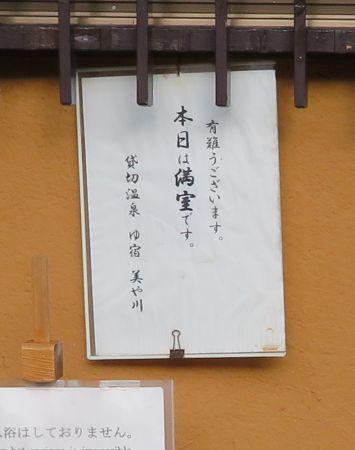 有難うございます。
本日は満室です。
貸切温泉 ゆ宿 美や川
浴はしておりません。
hot springs is impossible